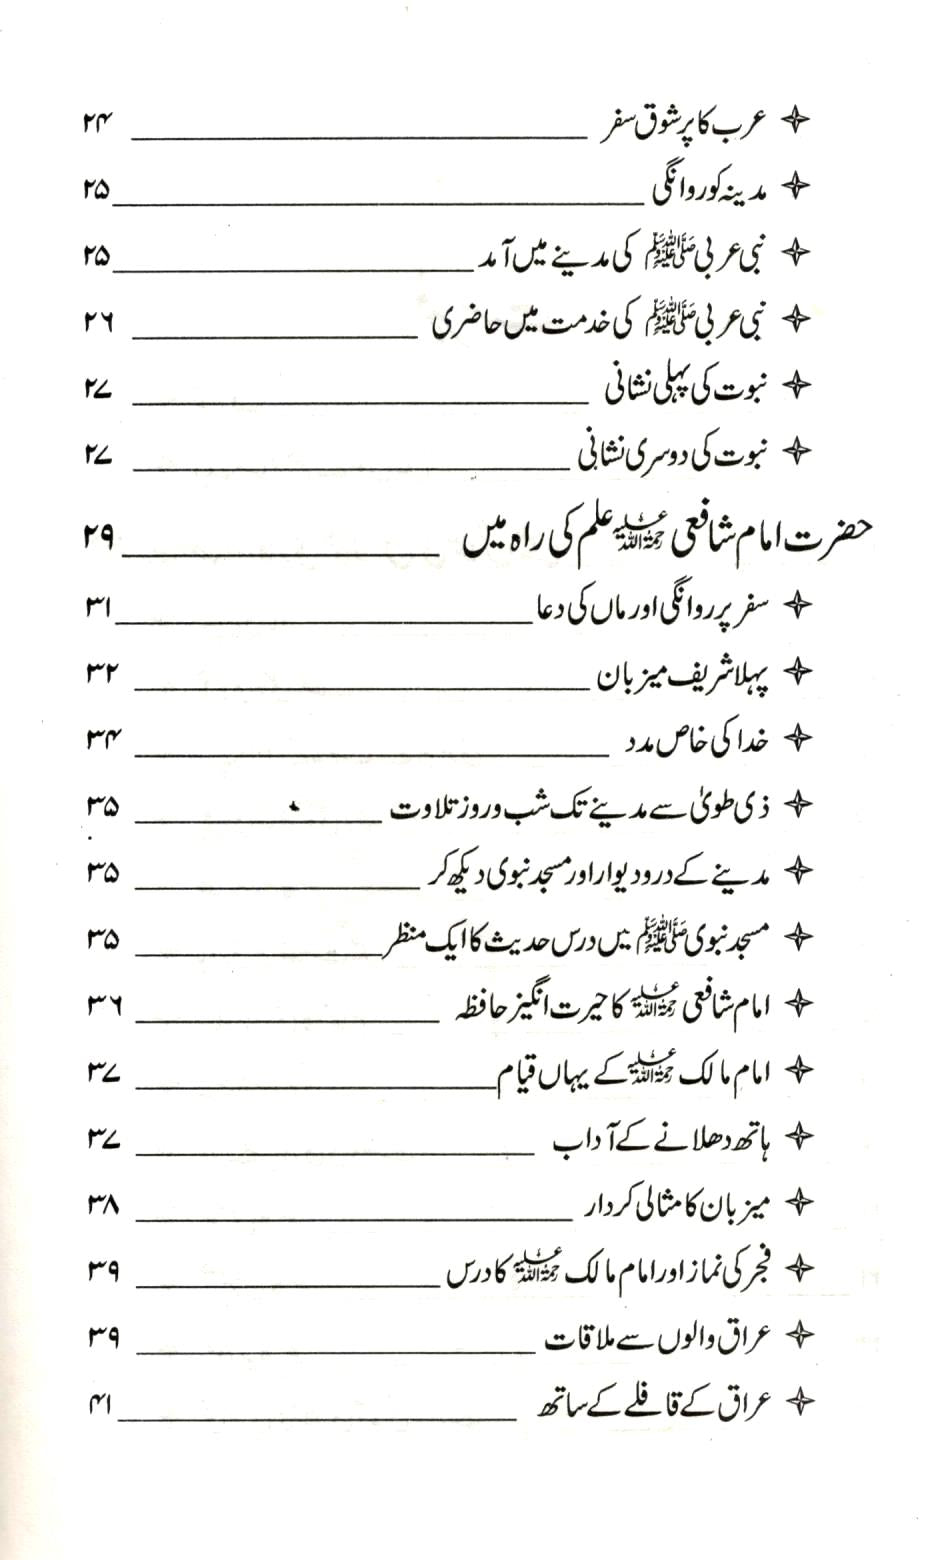 عرب کا پر شوق سفر ۲۴
مدینہ کو روانگی ۲۵
نبی عربی ﷺ کی مدینے میں آمد ۲۵
نبی عربی ﷺ کی خدمت میں حاضری ۲۶
نبوت کی پہلی نشانی ۲۷
نبوت کی دوسری نشانی ۲۷
حضرت امام شافعی رحمۃ اللہ علیہ علم کی راہ میں ۲۹
سفر پر روانگی اور ماں کی دعا ۳۱
پہلا شریف میزبان ۳۲
خدا کی خاص مدد ۳۴
ذی طویٰ سے مدینے تک شب و روز تلاوت ۳۵
مدینے کے در و دیوار اور مسجد نبوی دیکھ کر ۳۵
مسجد نبوی ﷺ میں درس حدیث کا ایک منظر ۳۵
امام شافعی رحمۃ اللہ علیہ کا حیرت انگیز حافظہ ۳۶
امام مالک رحمۃ اللہ علیہ کے یہاں قیام ۳۷
ہاتھ دھلانے کے آداب ۳۷
میزبان کا مثالی کردار ۳۸
فجر کی نماز اور امام مالک رحمۃ اللہ علیہ کا درس ۳۹
عراق والوں سے ملاقات ۳۹
عراق کے قافلے کے ساتھ ۴۱